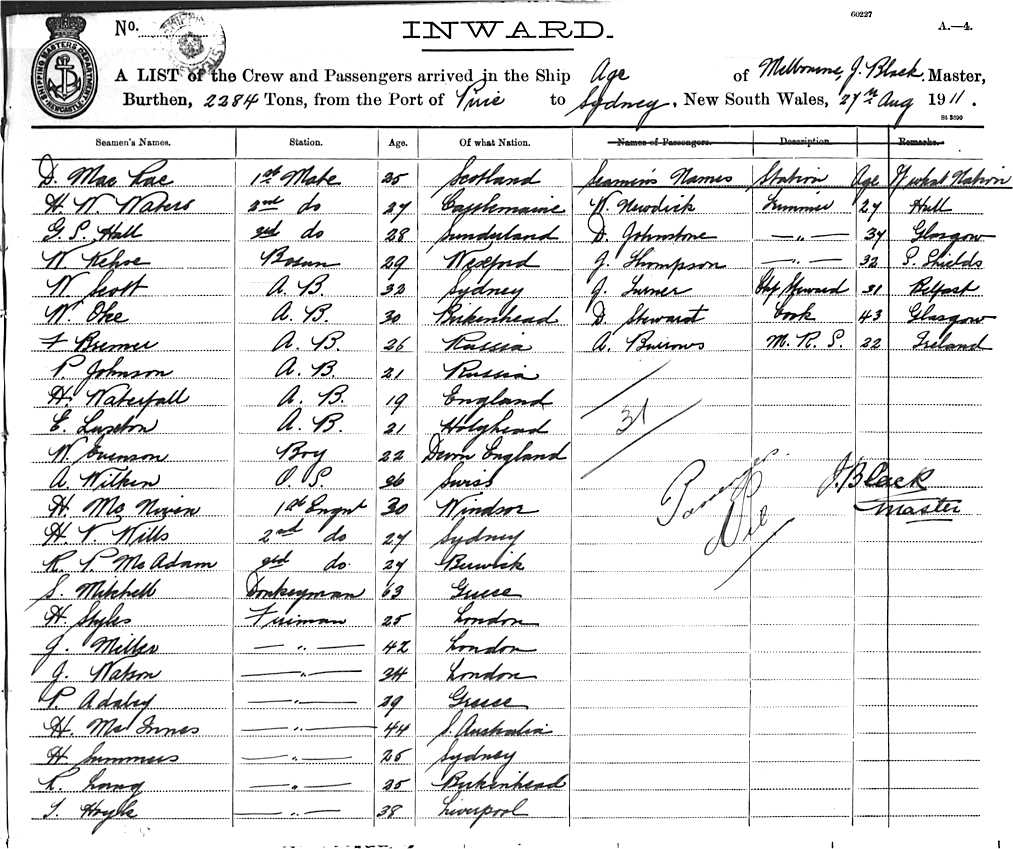 60227
No. INWARD. A.—4.
SHIPPING MASTERS DEPARTMENT NEWCASTLE
A LIST of the Crew and Passengers arrived in the Ship Age of Melbourne, J. Black, Master,
Burthen, 2284 Tons, from the Port of Pirie to Sydney, New South Wales, 27th Aug 1911.
Seamen's Names. Station. Age. Of what Nation. Names of Passengers. Description. Age Remarks.
D. Mac Rae 1st Mate 25 Scotland Seamen's Names Station Age Of what Nation
H. W. Waters 2nd do 27 Castlemaine W. Newdick Trimmer 27 Hull
G. S. Hall 3rd do 28 Sunderland D. Johnstone —„— 34 Glasgow
W. Kehoe Bosun 29 Wexford J. Thompson —„— 32 S. Shields
W. Scott A. B. 32 Sydney J. Turner Chf Steward 31 Belfast
W. Oke A. B. 30 Birkenhead D. Stewart Cook 43 Glasgow
F. Bremer A. B. 26 Russia A. Burrows M. R. S. 22 Ireland
P. Johnson A. B. 21 Russia
H. Waterfall A. B. 19 England
31
E. Luxton A. B. 21 Holyhead
W. Evenson Boy 22 Devon England
A. Wilken O. S. 26 Swiss
J. Black
H. Mc Niven 1st Engnr 30 Windsor
Master
Passengers
Nil
H. V. Wills 2nd do 27 Sydney
R. P. Mc Adam 3rd do. 27 Berwick
S. Mitchell Donkeyman 63 Greese
H. Styles Fireman 25 London
J. Miller —„— 42 London
J. Watson —„— 34 London
P. Adaley —„— 29 Greese
H. Mc Innes —„— 44 S. Australia
H. Summers —„— 25 Sydney
R. Long —„— 25 Birkenhead
T. Hoyle —„— 38 Liverpool